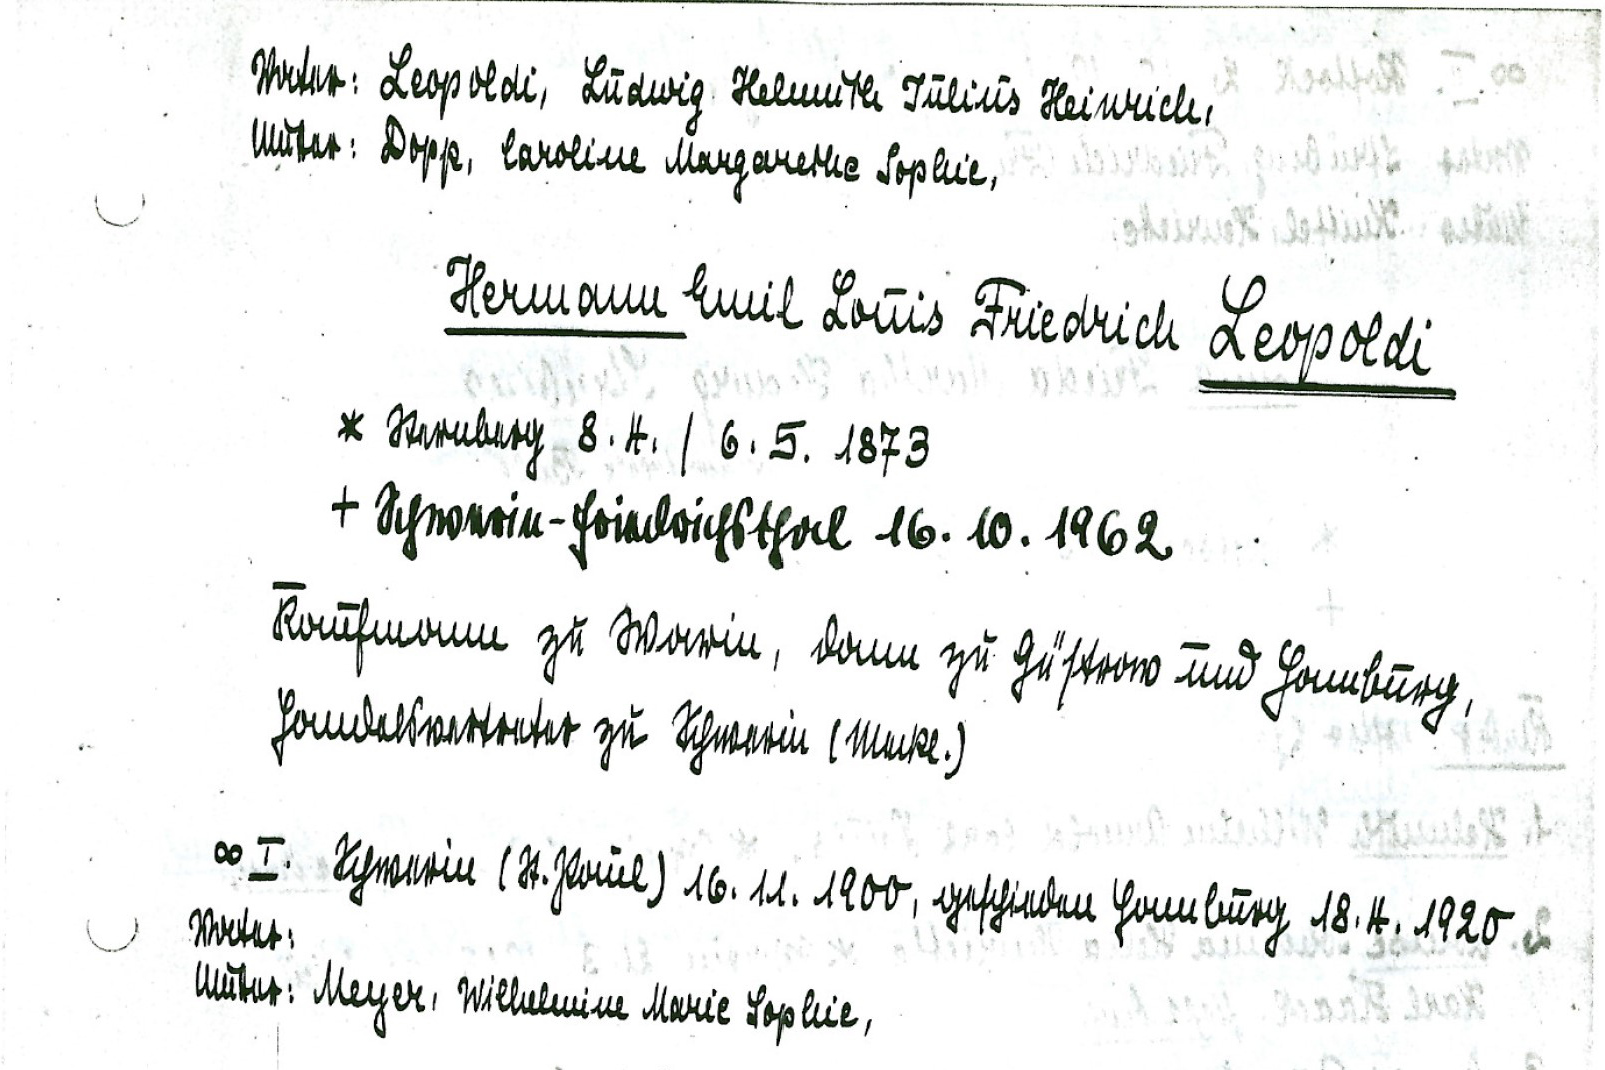 Vater: Leopoldi, Ludwig Helmuth Julius Heinrich,
Mutter: Dopp, Caroline Margarethe Sophie,
Hermann Emil Louis Friedrich Leopoldi
* Sternberg 8.4. / 6.5. 1873
+ Schwerin-Friedrichsthal 16.10.1962
Kaufmann zu Warin, dann zu Güstrow und Hamburg,
Handelsvertreter zu Schwerin (Meckl.)
∞ I. Schwerin (St. Paul) 16.11.1900, geschieden Hamburg 18.4.1920
Vater:
Mutter: Meyer, Wilhelmine Marie Sophie,